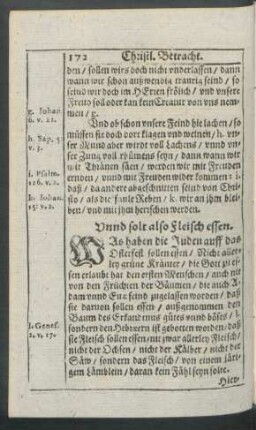 172 Christl. Betracht.
den / sollen wirs doch nicht vnderlassen / dann
wann wir schon außwendig traurig seind / so
seind wir doch im HErren frölich / vnd vnsere
Frewd soll oder kan kein Creatur von vns nem-
men / g.
g. Johan.
6. v. 22.
Vnd ob schon vnsere Feind hie lachen / so
müssen sie doch dort klagen vnd weinen / h. vn-
h. Sap. 5.
v. 3.
ser Mund aber wirdt voll Lachens / vnnd vn-
ser Zung voll rhümens seyn / dann wann wir
wir Thränen säen / werden wir mit Freuden
i. Psalm.
126. v. 2.
erndten / vnnd mit Frewden wider kommen: i.
daß / da andere abgeschnitten seind von Chri-
k. Johan.
15. v. 2.
sto / als die faule Reben / k. wir an jhm blei-
ben / vnd mit jhm herrschen werden.
Vnnd solt also Fleisch essen.
WAs haben die Juden auff das
Osterfest sollen essen / Nicht aller-
ley grüne Kräuter / die Gott zu es-
sen erlaubt hat den ersten Menschen / auch nit
von den Früchten der Bäumen / die auch A-
dam vnnd Eua seind zugelassen worden / daß
sie daruon sollen essen / außgenommen den
Baum des Erkandtnus gütes vnnd böses / l.
l. Genes.
2. v. 17.
sondern den Hebreern ist gebotten worden / daß
sie Fleisch sollen essen: nit zwar allerley Fleisch /
nicht der Ochsen / nicht der Kälber / nicht der
Säw / sondern das Fleisch / von einem järi-
gem Lämblein / daran kein Fähl seyn solte.
Hier-